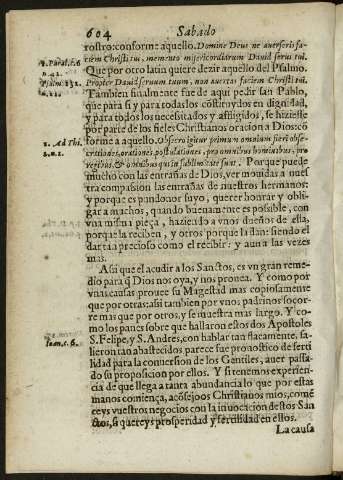 604 Sabado
rostro: conforme aquello. Domine Deus ne averseris fa-
2. Paral. c. 6
n. 42.
ciem Christi tui, memento misericordiarum David serui tui.
Que por otro latin quiere dezir aquello del Psalmo.
Psalm. 131.
n. 11.
Propter David seruum tuum, non auertas faciem Christi tui.
Tambien finalmente fue de aqui pedir san Pablo,
que para si y para todas los cõstituydos en dignidad,
y para todos los necessitados y affligidos, se hiziesse
por parte de los fieles Christianos oracion a Dios: cõ
1. Ad Thi.
2. n. 1.
forme a aquello. Obsecro igitur primum omnium fieri obse-
crationes, orationes, postulationes, pro omnibus hominibus, pro
regibus, & omnibus qui in sublimitate sunt. Porque puede
mucho con las entrañas de Dios, ver mouidas a nues
tra compassiõn las entrañas de nuestros hermanos:
y porque es pandonor suyo, querer honrar y obli-
gar a machos, quando buenamente es possible, con
vna misma pieça, haziendo a vnos dueños de ella,
porque la reciben, y otros porque la dan: siendo el
dar tan precioso como el recibir: y aun a las vezes
mas.
Assi que el acudir a los Sanctos, es vn gran reme-
dio para q̃ Dios nos oya, y nos prouea. Y como por
vnas causas prouee su Magestad mas copiosamente
que por otras; assi tambien por vnos padrinos socor-
re mas que por otros, y se nuestra mas largo. Y co-
mo los panes sobre que hallaron estos dos Apostoles
Ioan. c. 6.
S. Felipe, y S. Andres, con hablar tan flacamente, sa-
lieron tan abastecidos parece fue pronostico de ferti
lidad para la conuersion de los Gentiles, auer passa-
do su proposicion por ellos. Y si tenemos experien-
cia de que llega a tanta abundancia lo que por estas
manos comiença, acõsejoos Christianos mios, comẽ
ceys vuestros negocios con la inuocacion destos San
ctos, si quereys prosperidad y fertilidad en ellos.
La causa